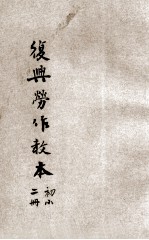 復興勞作教本
初小
二冊